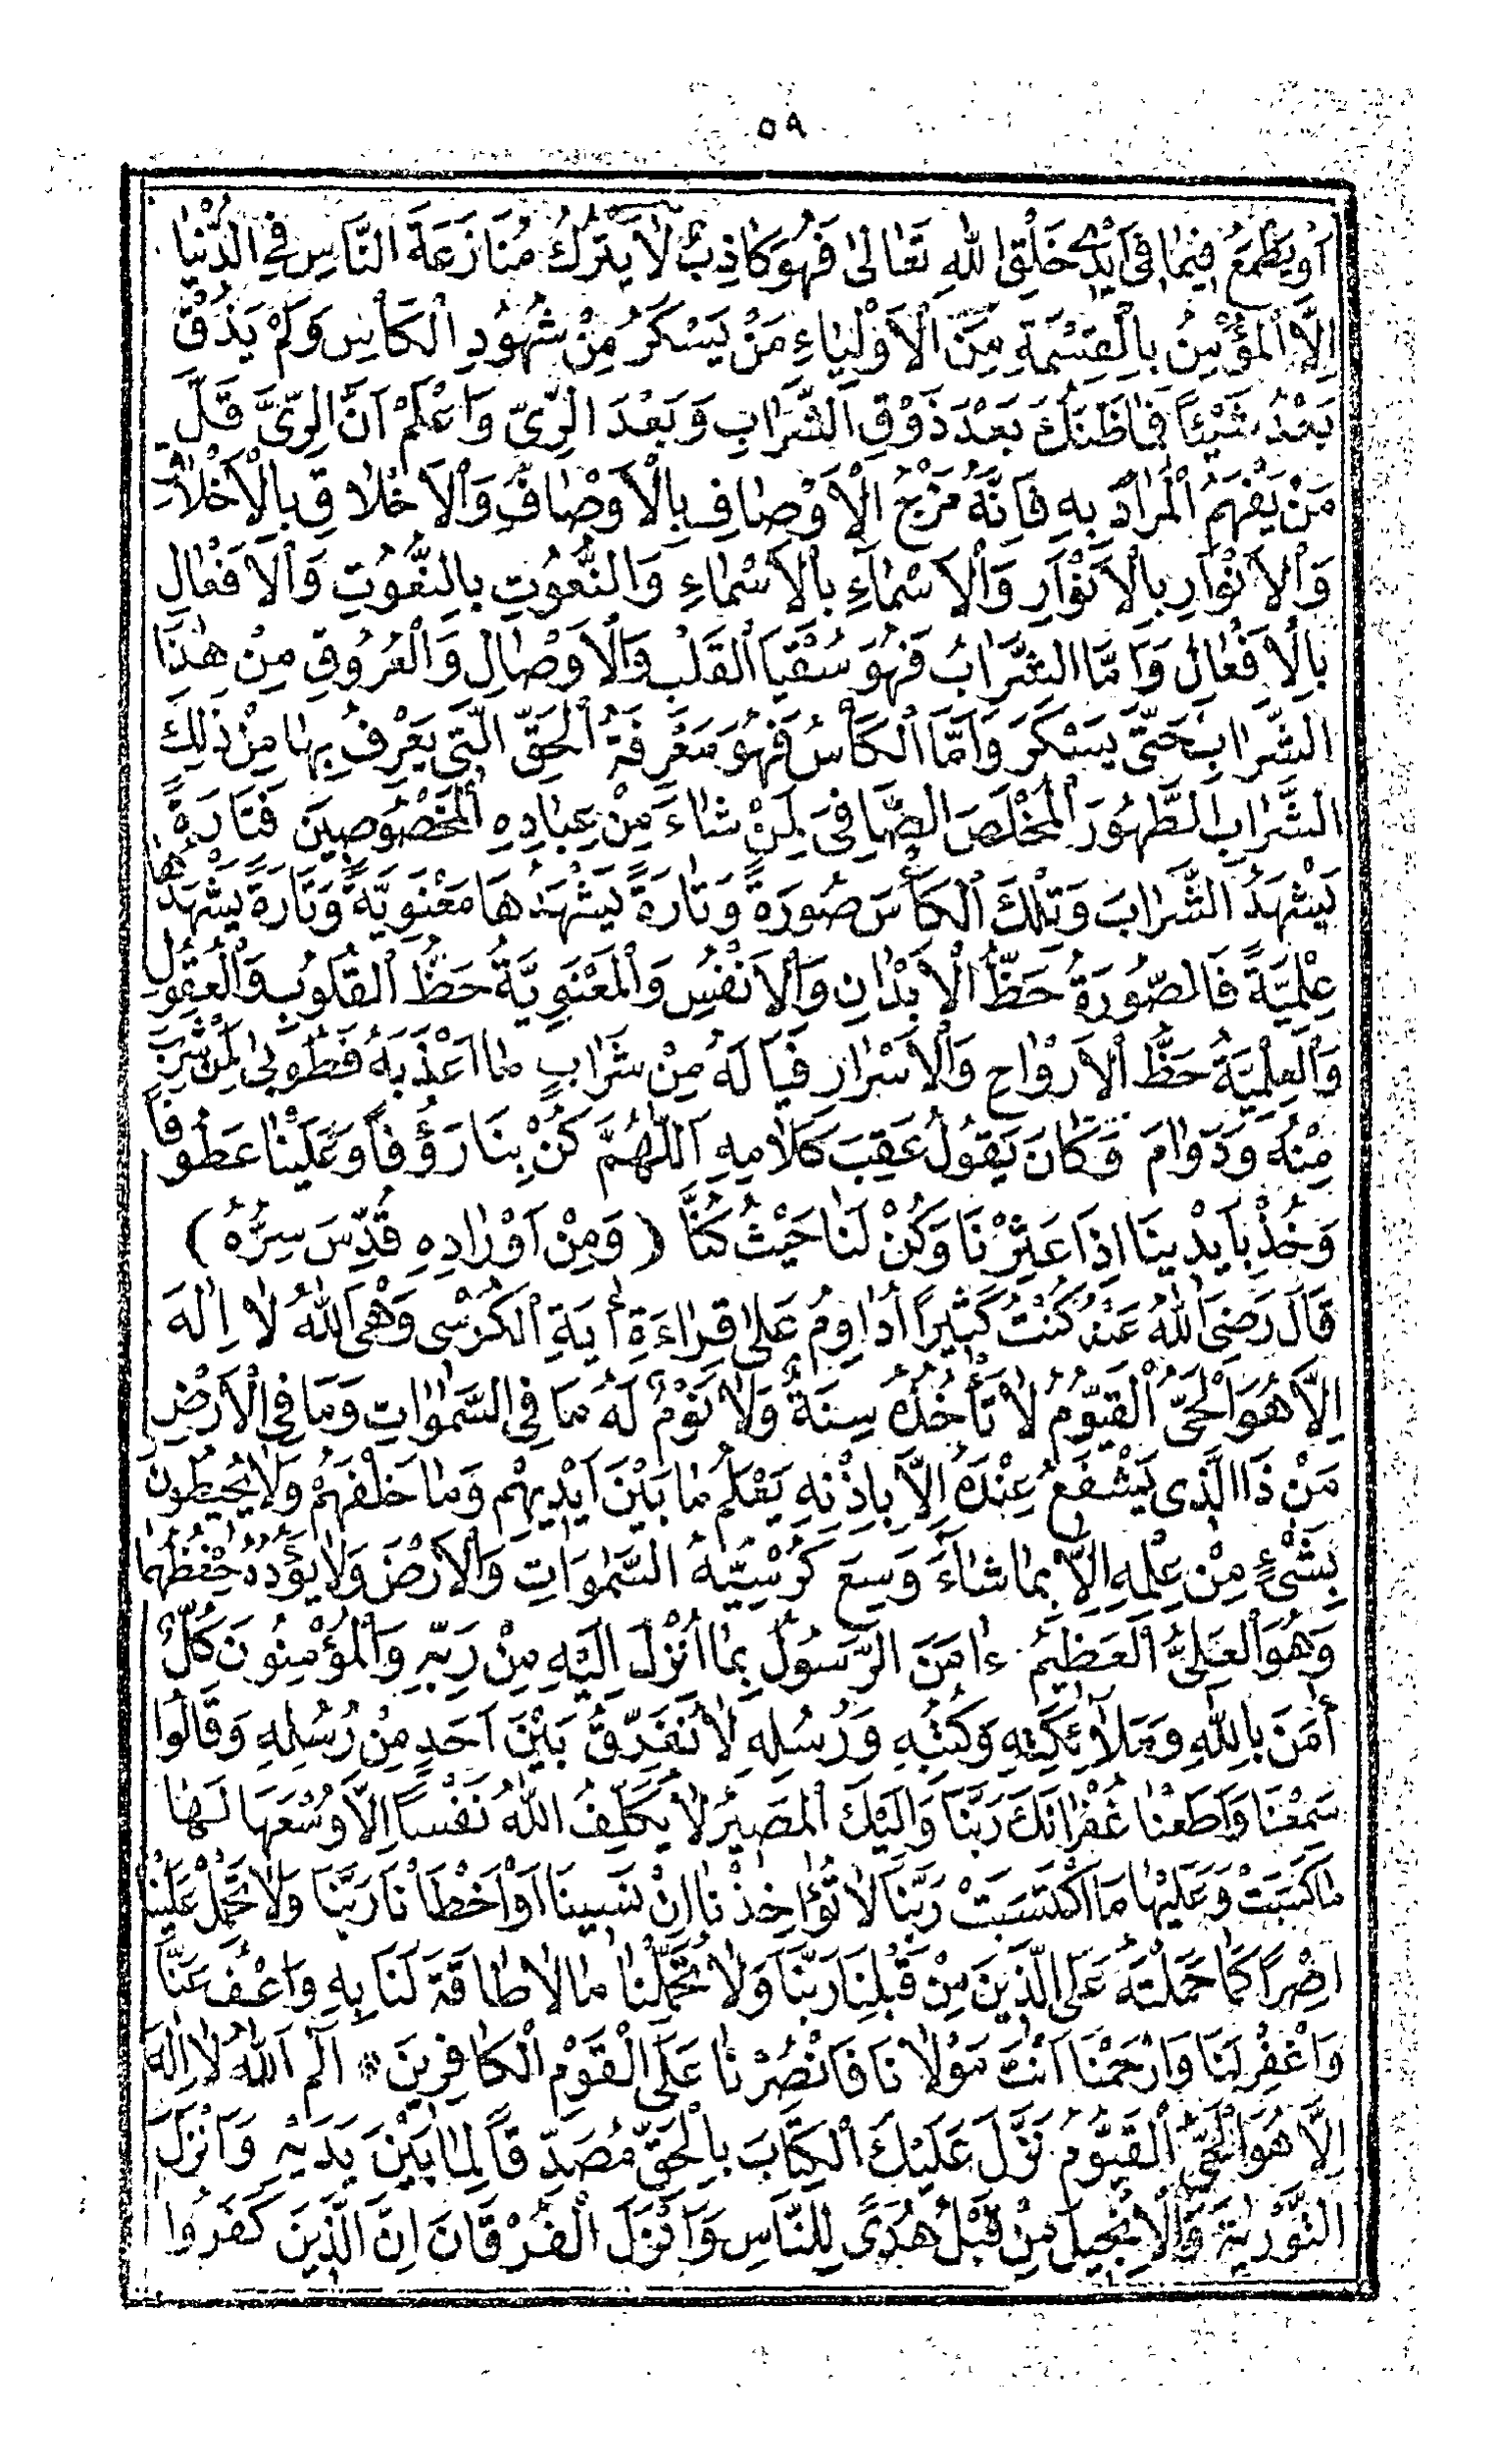 ٥٨
اَوْ يَطْمَعُ فِيمَا فِى اَيْدِى خَلْقِ اللهِ تَعَالَى فَهُوَ كَاذِبٌ لَا يَتْرُكُ مُنَازَعَةَ النَّاسِ فِى الدُّنْيَا
اِلَّا الْمُؤْمِنُ بِالْقِسْمَةِ مِنَ الْاَوْلِيَاءِ مَنْ يَسْكَرُ مِنْ شُهُودِ الْكَأْسِ وَلَمْ يَذُقْ
بَعْدُ شَيْئاً فَمَا ظَنُّكَ بَعْدَ ذَوْقِ الشَّرَابِ وَبَعْدَ الرِّىِّ وَاعْلَمْ اَنَّ الرِّىَّ قَلَّ
مَنْ يَفْهَمُ الْمُرَادَ بِهِ فَاِنَّهُ مَزْجُ الْاَوْصَافِ بِالْاَوْصَافِ وَالْاَخْلَاقِ بِالْاَخْلَاقِ
وَالْاَنْوَارِ بِالْاَنْوَارِ وَالْاَسْمَآءِ بِالْاَسْمَاءِ وَالنُّعُوتِ بِالنُّعُوتِ وَالْاَفْعَالِ
بِالْاَفْعَالِ وَاَمَّا الشَّرَابُ فَهُوَ سُقْيَا الْقَلْبِ وَالْاَوْصَالِ وَالْعُرُوقِ مِنْ هٰذَا
الشَّرَابِ حَتَّى يَسْكَرَ وَاَمَّا الْكَأْسُ فَهُوَ مَعْرِفَةُ الْحَقِّ الَّتِى يَعْرِفُ بِهَا مِنْ ذَلِكَ
الشَّرَابِ الطَّهُورَ الْمُخْلَصَ الصَّافِىَ لِمَنْ شَاءَ مِنْ عِبَادِهِ الْمَخْصُوصِينَ فَتَارَةً
يَشْهَدُ الشَّرَابَ وَتِلْكَ الْكَأْسَ صُورَةً وَتَارَةً يَشْهَدُهَا مَعْنَوِيَّةً وَتَارَةً يَشْهَدُهَا
عِلْمِيَّةً فَالصُّورَةُ حَظُّ الْاَبْدَانِ وَالْاَنْفُسِ وَالْمَعْنَوِيَّةُ حَظُّ الْقُلُوبِ وَالْعُقُولِ
وَالْعِلْمِيَّةُ حَظُّ الْاَرْوَاحِ وَالْاَسْرَارِ فَيَا لَهُ مِنْ شَرَابٍ مَا اَعْذَبَهُ فَطُوبَى لِمَنْ شَرِبَ
مِنْهُ وَدَوَامَ وَكَانَ يَقُولُ عَقِبَ كَلَامِهِ اَللّٰهُمَّ كُنْ بِنَا رَؤُفاً وَعَلَيْنَا عَطُوفاً
وَخُذْ بِاَيْدِينَا اِذَا عَثِرْنَا وَكُنْ لَنَا حَيْثُ كُنَّا ( وَمِنْ اَوْرَادِهِ قُدِّسَ سِرُّهُ )
قَالَ رَضِىَ اللهُ عَنْهُ كُنْتُ كَثِيراً اُدَاوِمُ عَلَى قِرَاءَةِ اٰيَةِ الْكُرْسِى وَهْىَ اَللهُ لَا اِلٰهَ
اِلَّا هُوَ الْحَىُّ الْقَيُّومُ لَا تَأْخُذُهُ سِنَةٌ وَلَا نَوْمٌ لَهُ مَا فِى السَّمٰوَاتِ وَمَا فِى الْاَرْضِ
مَنْ ذَا الَّذِى يَشْفَعُ عِنْدَهُ اِلَّا بِاِذْنِهِ يَعْلَمُ مَا بَيْنَ اَيْدِيهِمْ وَمَا خَلْفَهُمْ وَلَا يُحِيطُونَ
بِشَىْءٍ مِنْ عِلْمِهِ اِلَّا بِمَا شَاءَ وَسِعَ كُرْسِيُّهُ السَّمٰوَاتِ وَالْاَرْضَ وَلَا يَؤُدُهُ حِفْظُهُمَا
وَهُوَ الْعَلِىُّ الْعَظِيمُ ءٰامَنَ الرَّسُولُ بِمَا اُنْزِلَ اِلَيْهِ مِنْ رَبِّهِ وَالْمُؤْمِنُونَ كُلٌّ
اٰمَنَ بِاللهِ وَمَلَآئِكَتِهِ وَكُتُبِهِ وَرُسُلِهِ لَا نُفَرِّقُ بَيْنَ اَحَدٍ مِنْ رُسُلِهِ وَقَالُوا
سَمِعْنَا وَاَطَعْنَا غُفْرَانَكَ رَبَّنَا وَاِلَيْكَ الْمَصِيرُ لَا يُكَلِّفُ اللهُ نَفْساً اِلَّا وُسْعَهَا لَهَا
مَا كَسَبَتْ وَعَلَيْهَا مَا اكْتَسَبَتْ رَبَّنَا لَا تُؤَاخِذْنَا اِنْ نَسِينَا اَوْ اَخْطَاْنَا رَبَّنَا وَلَا تَحْمِلْ عَلَيْنَا
اِصْراً كَمَا حَمَلْتَهُ عَلَى الَّذِينَ مِنْ قَبْلِنَا رَبَّنَا وَلَا تُحَمِّلْنَا مَا لَا طَاقَةَ لَنَا بِهِ وَاعْفُ عَنَّا
وَاغْفِرْ لَنَا وَارْحَمْنَا اَنْتَ مَوْلَانَا فَانْصُرْنَا عَلَى الْقَوْمِ الْكَافِرِينَ * الٓمٓ اَللهُ لَا اِلٰهَ
اِلَّا هُوَ الْحَىُّ الْقَيُّومُ نَزَّلَ عَلَيْكَ الْكِتَابَ بِالْحَقِّ مُصَدِّقاً لِمَا بَيْنَ يَدَيْهِ وَاَنْزَلَ
التَّوْرٰيةَ وَالْاِنْجِيلَ مِنْ قَبْلُ هُدًى لِلنَّاسِ وَاَنْزَلَ الْفُرْقَانَ اِنَّ الَّذِينَ كَفَرُوا